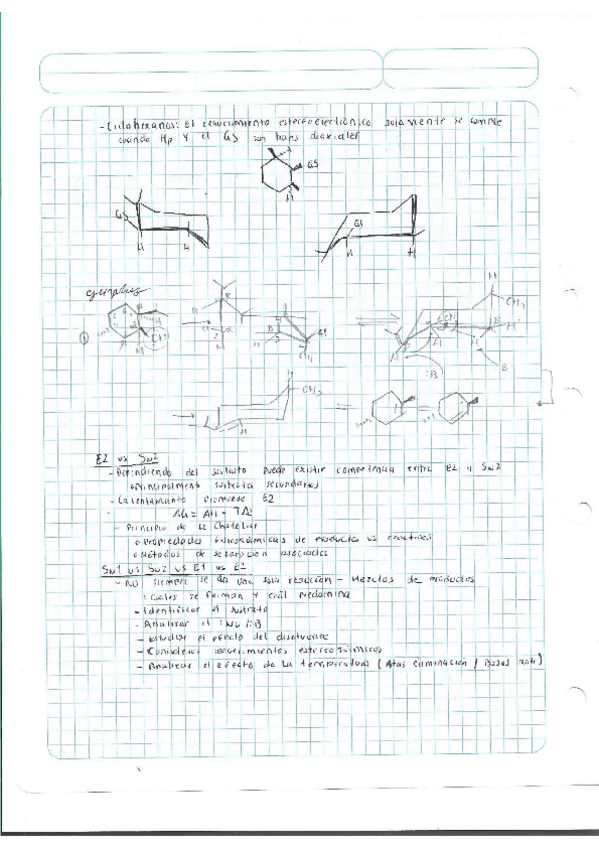 - Ciclohexanos: El requerimiento estereoelectrónico solamente se cumple
cuando Hβ y el GS son trans diaxiales
GS
H
GS
H H
GS
H H
ejemplos
H
CH3
①
Cl
H
CH3
H
:B
B
CH3
H
= =
E2 vs SN2
- Dependiendo del sustrato puede existir competencia entre E2 y SN2
o principalmente sustratos secundarios
- Calentamiento promueve E2
ΔG = ΔH - TΔS
- Principio de Le Chatelier
o Propiedades fisicoquímicas de productos vs reactivos
o Métodos de separación asociados
SN1 vs SN2 vs E1 vs E2
- No siempre se da una sola reacción - Mezclas de productos
: Cuales se forman y cuál predomina
- Identificar el sustrato
- Analizar el :Nu / :B
- Estudiar el efecto del disolvente
- Considerar requerimientos estereoquímicos
- Analizar el efecto de la temperatura (Altas eliminación / Bajas